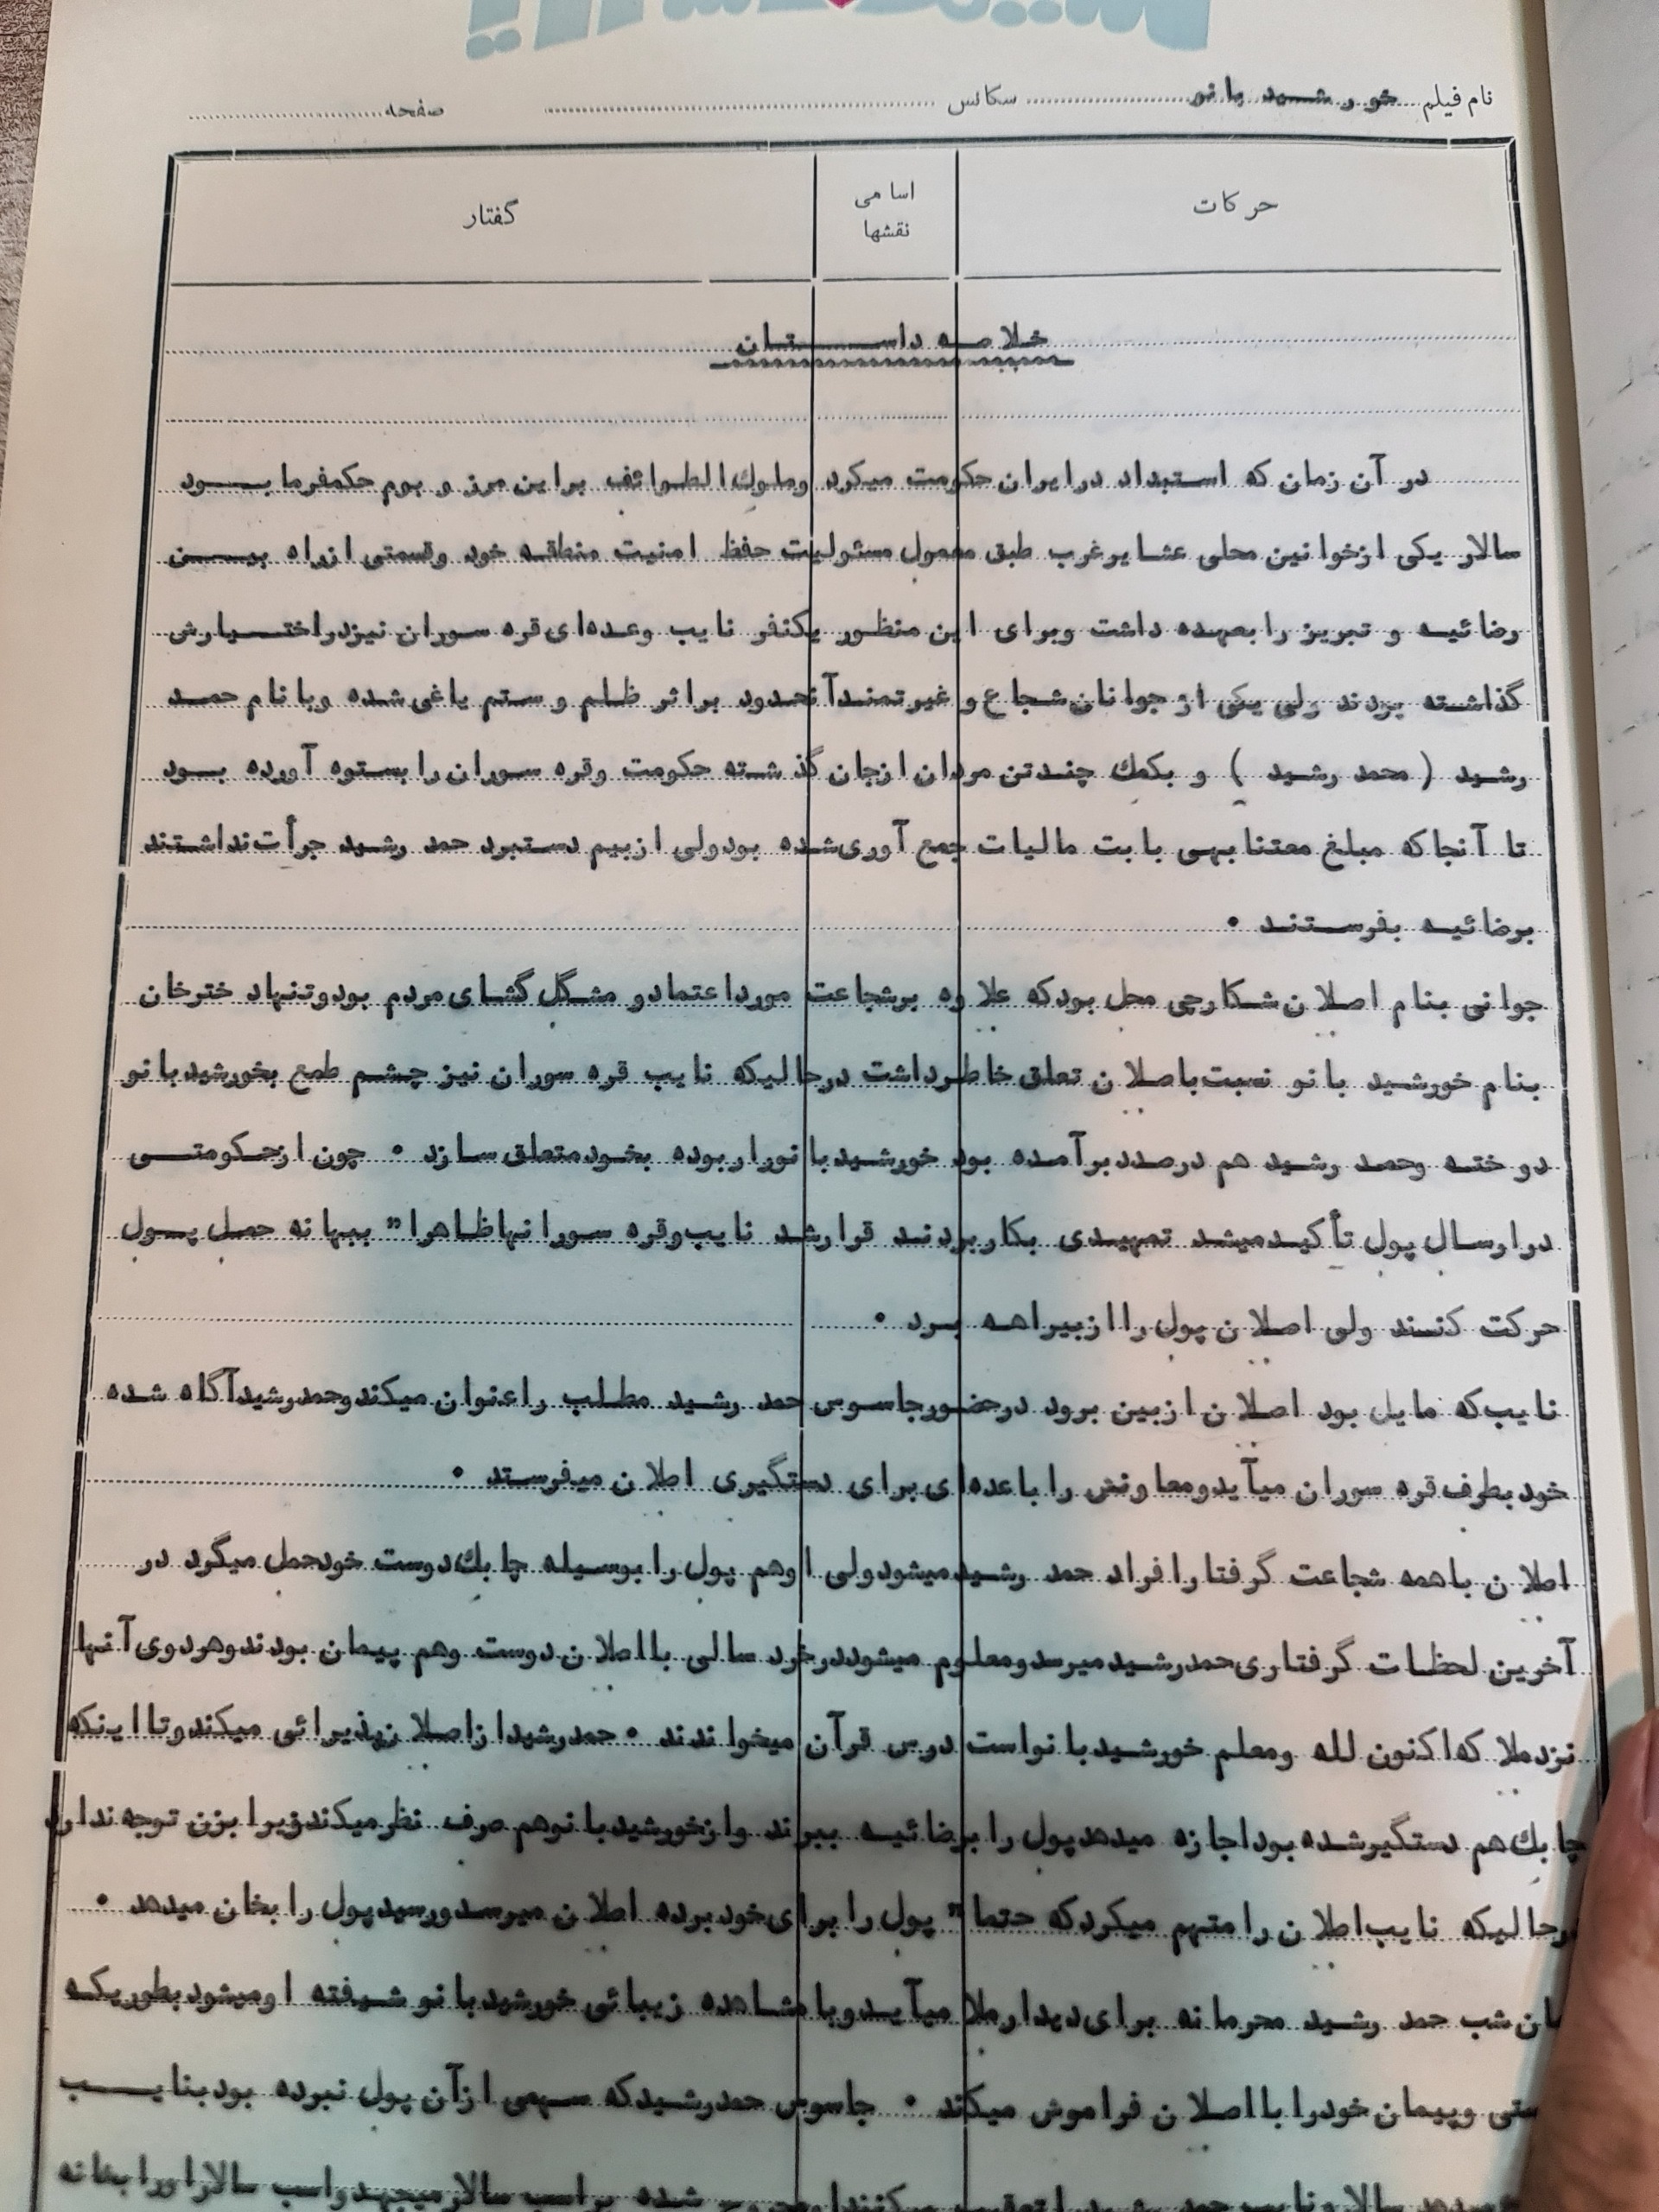 نام فیلم خورشید بانو سکانس صفحه
حرکات اسامی نقشها گفتار
خلاصه داستان
در آن زمان که استبداد در ایران حکومت میکرد وملوك الطوائف براین مرز و بوم حکمفرما بود
سالار یکی ازخوانین محلی عشایرغرب طبق معمول مسئولیت حفظ امنیت منطقه خود وقسمتی ازراه بین
رضائیه و تبریز رابعهده داشت وبرای این منظور یکنفر نایب وعده‌ای قره سوران نیزدراختیارش
گذاشته بودند ولی یکی از جوانان شجاع و غیرتمندآنحدود براثر ظلم و ستم یاغی شده وبانام حمد
رشید ( محمد رشید ) و بکمك چندتن مردان ازجان گذشته حکومت وقره سوران رابستوه آورده بود
تا آنجاکه مبلغ معتنابهی بابت مالیات جمع آوری شده بودولی ازبیم دستبرد حمد رشید جرأت نداشتند
برضائیه بفرستند .
جوانی بنام اصلان شکارچی محل بودکه علاوه برشجاعت مورداعتمادو مشگل گشای مردم بودوتنهاد خترخان
بنام خورشید بانو نسبت باصلان تعلق خاطرداشت درحالیکه نایب قره سوران نیز چشم طمع بخورشیدبانو
دوخته وحمد رشید هم درصددبرآمده بود خورشیدبانوراربوده بخودمتعلق سازد . چون ازحکومتی
درارسال پول تأکیدمیشد تمهیدی بکاربردند قرارشد نایب وقره سورانهاظاهرا" ببهانه حمل پول
حرکت کنند ولی اصلان پول راازبیراهه برد .
نایب که مایل بود اصلان ازبین برود درحضورجاسوس حمد رشید مطلب راعنوان میکندوحمدرشیدآگاه شده
خودبطرف قره سوران میآیدومعاونش راباعده‌ای برای دستگیری اصلان میفرستد .
اصلان باهمه شجاعت گرفتارافراد حمد رشیدمیشودولی اوهم پول رابوسیله چابك دوست خودحمل میگرد در
آخرین لحظات گرفتاری حمدرشیدمیرسدومعلوم میشوددرخرد سالی بااصلان دوست وهم پیمان بودندوهردوی آنها
نزدملا که اکنون لله ومعلم خورشیدبانواست درس قرآن میخواندند . حمدرشیدازاصلان پذیرائی میکندوتااینکه
چابك هم دستگیرشده بوداجازه میدهدپول رابرضائیه ببرند وازخورشیدبانوهم صرف نظرمیکندزیرابزن توجه ندارد
درحالیکه نایب اصلان رامتهم میکردکه حتما" پول رابرای خودبرده اصلان میرسدورسیدپول رابخان میدهد .
شب حمد رشید محرمانه برای دیدارملا میآیدوبامشاهده زیبائی خورشیدبانو شیفته اومیشودبطوریکه
وپیمان خودرابااصلان فراموش میکند . جاسوس حمدرشیدکه سهمی ازآن پول نبرده بودبنایب
سالارونایب حمد تعقیب میکنند شده براسب سالارمیجهدواسب سالاراورابخانه